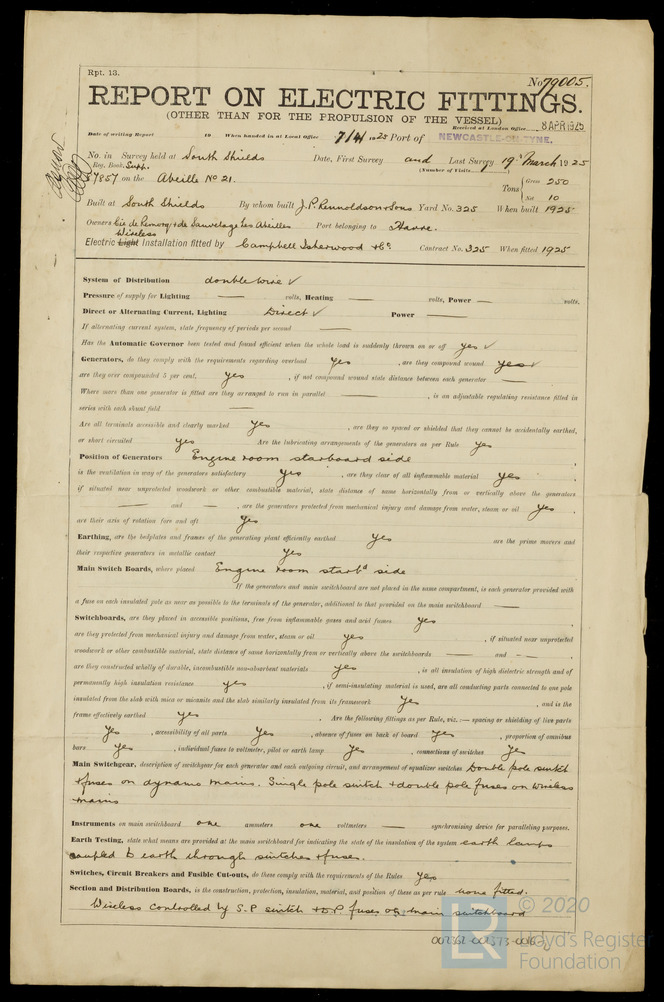 Rpt. 13.
No 79005.
REPORT ON ELECTRIC FITTINGS.
(OTHER THAN FOR THE PROPULSION OF THE VESSEL)
Received at London Office 8 APR 1925
Date of writing Report 19 When handed in at Local Office 7/4/ 1925 Port of NEWCASTLE-ON-TYNE.
No. in Survey held at South Shields Date, First Survey and Last Survey 19th March 1925
Reg. Book. Supp. (Number of Visits
37857 on the Abeille No 21. Tons { Gross 250
Net 10
Built at South Shields By whom built J.P. Rennoldson & Sons Yard No. 325 When built 1925
Owners Cie de Remorq: & de Sauvetage Les Abeilles Port belonging to Havre.
Wireless
Electric Light installation fitted by Campbell Isherwood & Co Contract No. 325 When fitted 1925
System of Distribution double wire ✓
Pressure of supply for Lighting — volts, Heating — volts, Power — volts.
Direct or Alternating Current, Lighting Direct ✓ Power —
If alternating current system, state frequency of periods per second —
Has the Automatic Governor been tested and found efficient when the whole load is suddenly thrown on or off yes ✓
Generators, do they comply with the requirements regarding overload yes , are they compound wound yes ✓
are they over compounded 5 per cent. yes , if not compound wound state distance between each generator —
Where more than one generator is fitted are they arranged to run in parallel — , is an adjustable regulating resistance fitted in
series with each shunt field —
Are all terminals accessible and clearly marked yes , are they so spaced or shielded that they cannot be accidentally earthed,
or short circuited yes Are the lubricating arrangements of the generators as per Rule yes
Position of Generators Engine room starboard side
is the ventilation in way of the generators satisfactory yes , are they clear of all inflammable material yes ,
if situated near unprotected woodwork or other combustible material, state distance of same horizontally from or vertically above the generators
— and — , are the generators protected from mechanical injury and damage from water, steam or oil yes ,
are their axis of rotation fore and aft yes
Earthing, are the bedplates and frames of the generating plant efficiently earthed yes are the prime movers and
their respective generators in metallic contact yes
Main Switch Boards, where placed Engine room starbd side
If the generators and main switchboard are not placed in the same compartment, is each generator provided with
a fuse on each insulated pole as near as possible to the terminals of the generator, additional to that provided on the main switchboard —
Switchboards, are they placed in accessible positions, free from inflammable gases and acid fumes yes ,
are they protected from mechanical injury and damage from water, steam or oil yes , if situated near unprotected
woodwork or other combustible material, state distance of same horizontally from or vertically above the switchboards — and — ,
are they constructed wholly of durable, incombustible non-absorbent materials yes , is all insulation of high dielectric strength and of
permanently high insulation resistance yes , if semi-insulating material is used, are all conducting parts connected to one pole
insulated from the slab with mica or micanite and the slab similarly insulated from its framework yes , and is the
frame effectively earthed yes . Are the following fittings as per Rule, viz.:— spacing or shielding of live parts
yes , accessibility of all parts yes , absence of fuses on back of board yes , proportion of omnibus
bars yes , individual fuses to voltmeter, pilot or earth lamp yes , connections of switches yes
Main Switchgear, description of switchgear for each generator and each outgoing circuit, and arrangement of equalizer switches Double pole switch
& fuses on dynamo mains. Single pole switch & double pole fuses on wireless
mains
Instruments on main switchboard one ammeters one voltmeters — synchronising device for paralleling purposes.
Earth Testing, state what means are provided at the main switchboard for indicating the state of the insulation of the system earth lamps
coupled to earth through switches & fuses.
Switches, Circuit Breakers and Fusible Cut-outs, do these comply with the requirements of the Rules yes
Section and Distribution Boards, is the construction, protection, insulation, material, and position of these as per rule none fitted.
Wireless controlled by S.P switch & D.P. fuses on main switchboard
© 2020
LR Lloyd's Register
Foundation